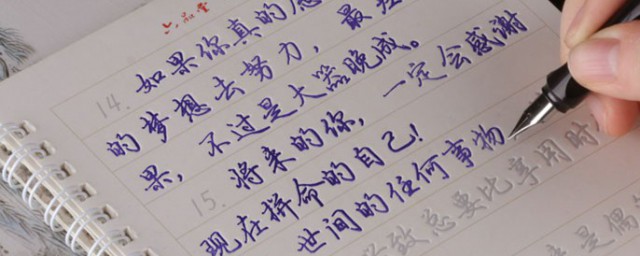 六品堂
14. 如果你真的愿
的梦想去努力，最差
果，不过是大器晚成。
将来的你，一定会感谢
现在拼命的自己!
15. 世间的任何事物
致总要比享用时
是偶